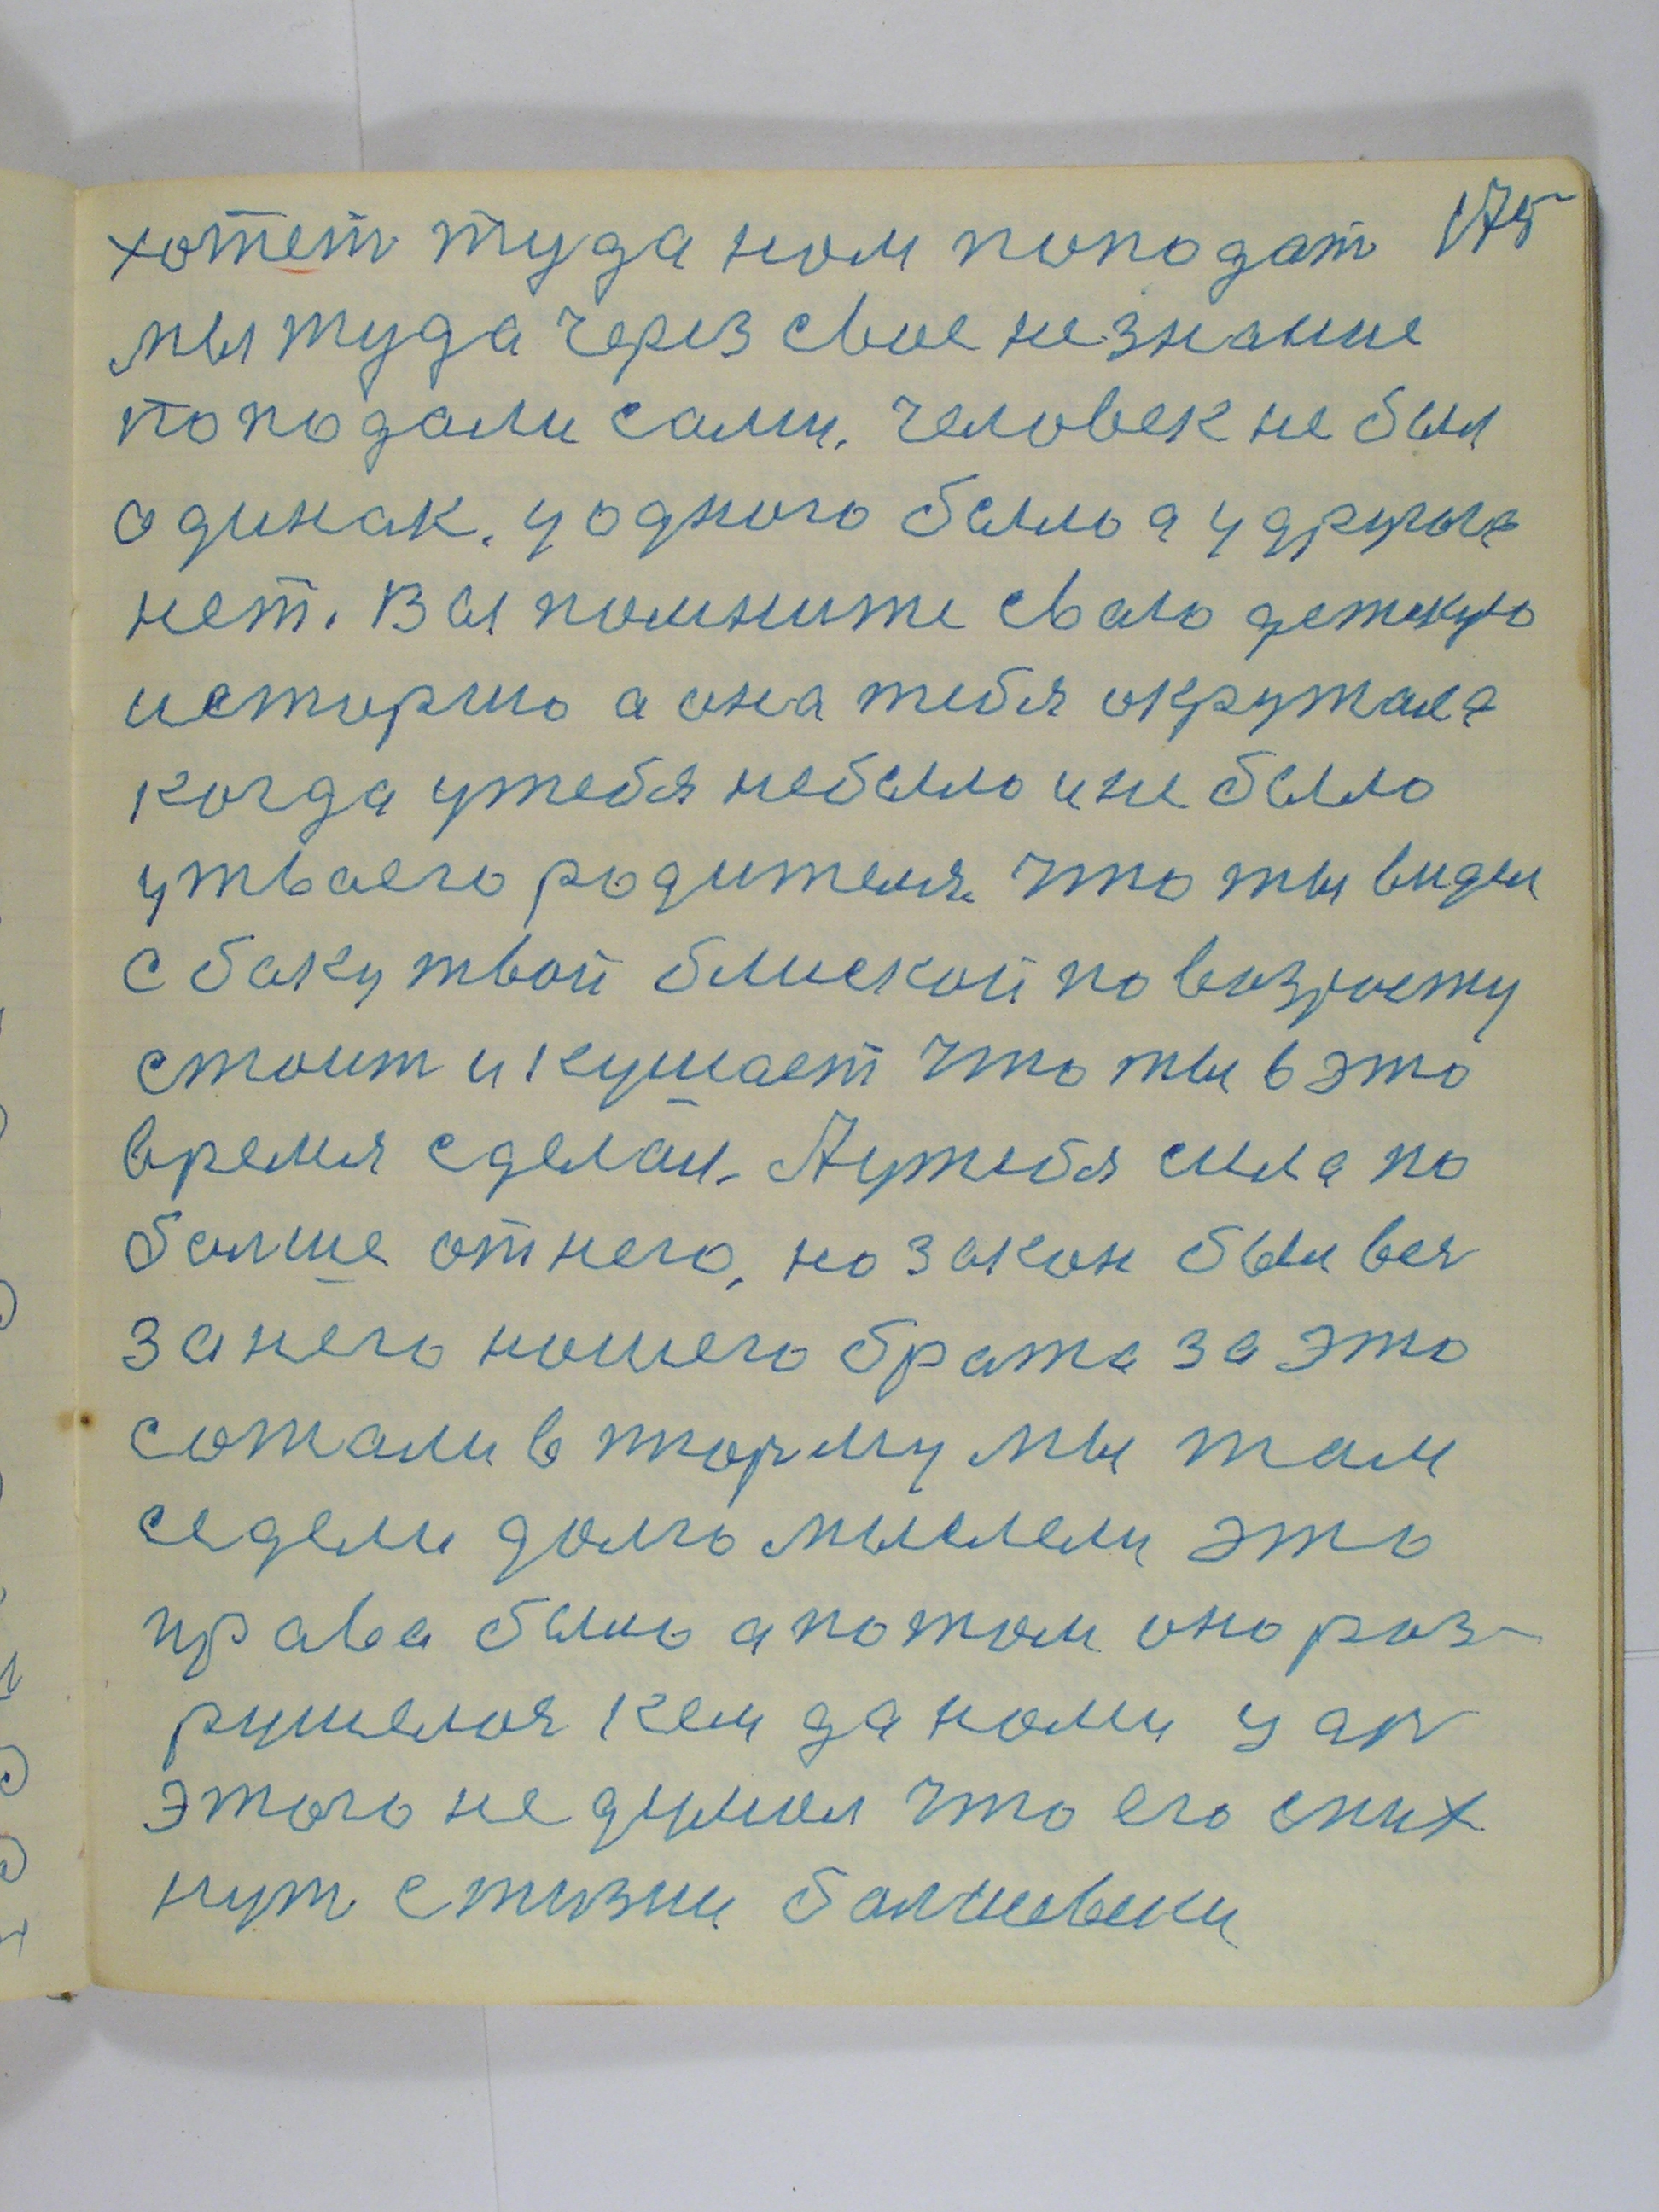 175
хотет туда ном пoподат
мы туда через свое незнание
поподали сами. человек не был
одинак. у одного было а у другога
нет. Вы помните сваю детскую
историю а она тебя окружала
когда утебя небыло и не было
утваего родителя что ты видел
сбоку твой блиской по возросту
стоит и кушает что ты в это
время сделал. Аутебя сила по
болше отнего, но закон был вея
занего ношего брата за это
сожали в тюрму мы там
седели долго мыслели это
права было а потом оно роз-
рушелоя кем да номи цар
этого не думол что его спих
нут с жизни болшевики